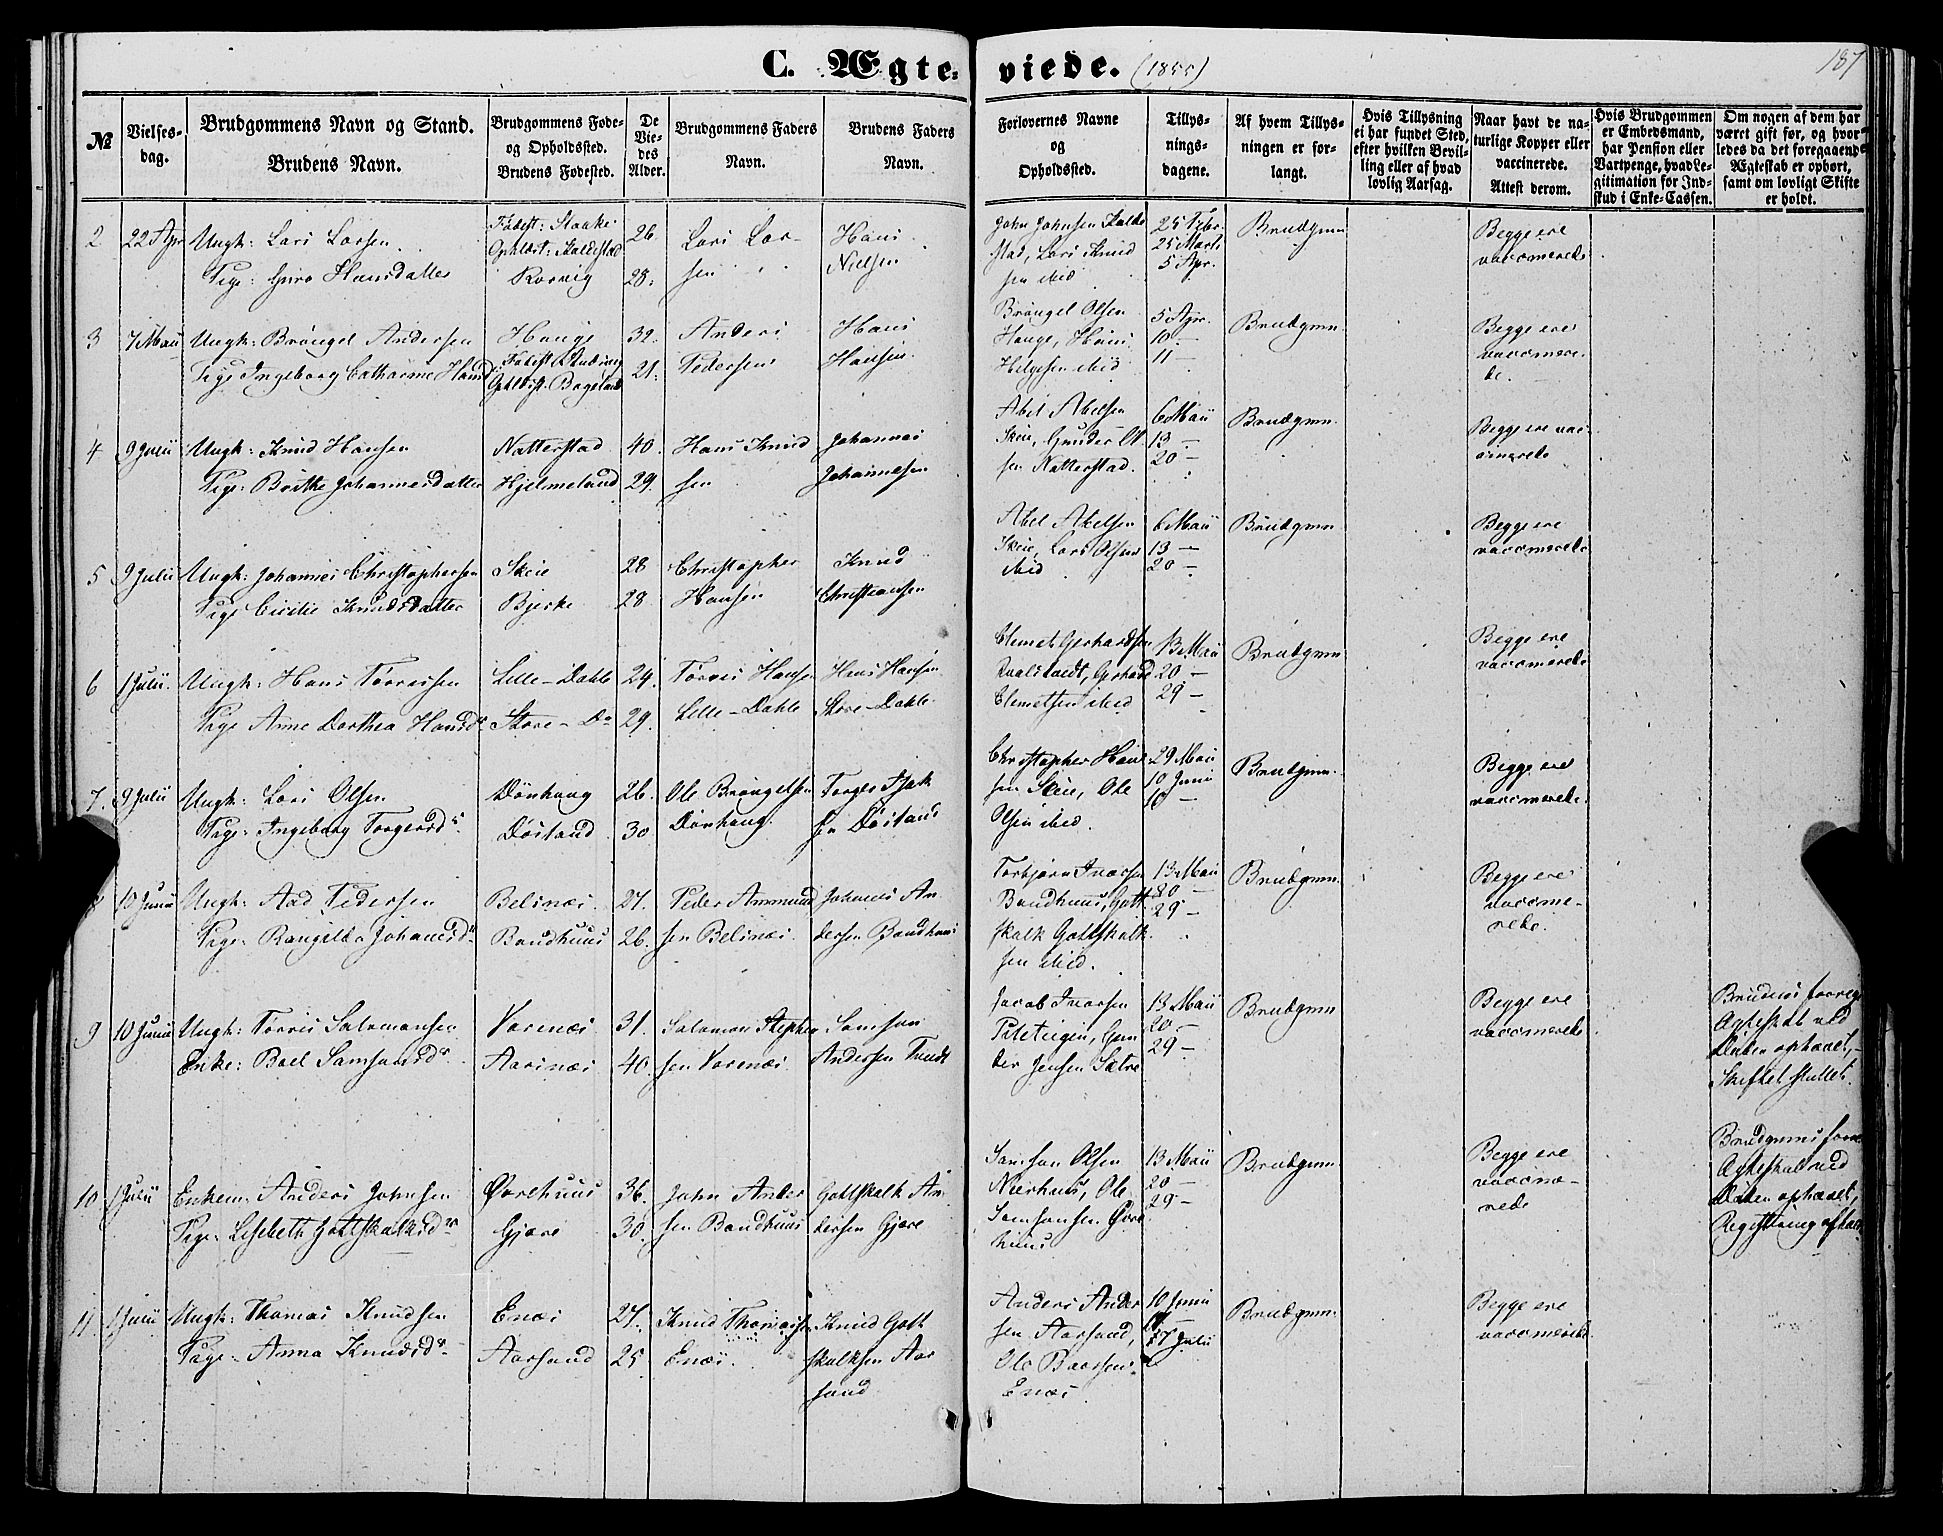 C. Ægte-viede. (1855)
187
№
Vielses-dag.
Brudgommens Navn og Stand.
Brudens Navn.
Brudgommens Føde-
og Opholdssted.
Brudens Fødested.
De
Vie-
des
Alder.
Brudgommens Faders
Navn.
Brudens Faders
Navn.
Forlovernes Navne
og
Opholdssted.
Tillys-
nings-
dagene.
Af hvem Tillys-
ningen er for-
langt.
Hvis Tillysning
ei har fundet Sted,
efter hvilken Bevil-
ling eller af hvad
lovlig Aarsag.
Naar havt de na-
turlige Kopper eller
vaccinerede.
Attest derom.
Hvis Brudgommen
er Embedsmand,
har Pension eller
Vartpenge, hvad Le-
gitimation for Ind-
skud i Enke-Cassen.
Om nogen af dem har
været gift før, og hvor-
ledes da det foregaaende
Ægteskab er ophørt,
samt om lovligt Skifte
er holdt.
2
22 Apr
Ungk: Lars Larsen
Pige: Guro Hansdatter
Fødest: Staake
Opholdst:
26
28
Lars Lar-
sen
Hans
Nielsen
John Johnsen
stad, Lars Knud
sen ibid
25 Febr.
25 Marts
5 Apr.
Brudgmn
Begge ere
vaccinerede
3
7 Maii
Ungk: Brøngel Andersen
Pige Ingeborg Cathrine Hansd
Hauge
Fødest
Opholdst.
32
21
Anders
Pedersen
Hans
Hansen
Brøngel Olsen
Hauge, Hans
Helgesen ibid
5 Apr.
10 -
11 -
Brudgmn.
Begge ere
vaccinere-
de.
4
9 Julii
Ungk: Knud Hansen
Pige: Birthe Johannesdatter
Natterstad
Hjelmeland
40
29
Hans Knud
sen
Johannes
Johannesen
Abel Abelsen
Skeie, Gunder Ol
sen Natterstad.
6 Maii
13 -
20 -
Brudgmn.
Begge ere vac-
cinerede
5
9 Julii
Ungk: Johannes Christophersen
Pige Cicilie Knudsdatter
Skeie
Bjerke
28
28
Christopher
Hansen
Knud
Christiansen
Abel Abelsen
Skeie, Lars Olsen
ibid
6 Maii
13 -
20 -
Brudgmn
Begge ere
vaccinerede
6
1 Julii
Ungk: Hans Tørresen
Pige Anne Dorthea Hansdr
Lille-Dahle
Store-Do
24
29
Tørres Hansen
Lille-Dahle
Hans Hansen
Store-Dahle
Clemet Gerhardsen
Gerhard
Clemetsen ibid
13 Maii
20 -
29 -
Brudgmn
Begge ere
vaccinerede
7.
9 Julii
Ungk: Lars Olsen
Pige: Ingeborg Torgersdr
Dønhaug
Døsland
26
30
Ole Brøngelsen
Dønhaug.
Torger Isak
sen Døsland
Christopher Han
sen Skeie, Ole
Olsen ibid.
29 Maii
10 Juni
Brudgmn.
Begge ere
vaccinerede
8
10 Junii
Ungk: Aad Pedersen
Pige: Rangela Johansdr
Belsnæs
Bandhuus
27
26
Peder Ammund
sen Belsnæs.
Johannes An
dersen Bandhuus
Torbjørn Ivarsen
Bandhuus, Gott
skalk Gottskalk
sen ibid.
13 Maii
20 -
29 -
Brudgmn.
Begge ere
vaccine-
rede.
9
10 Junii
Ungk: Tørris Salamonsen
Enke: Boel Samsonsdr
Vornæs
Aarsnæs
31.
40
Salamon Stephen
sen Vornæs
Samson
Andersen Tvedt
Jacob Ivarsen
Gun
der Jensen Sætre
13 Maii
20 -
29 -
Brudgmn
Begge ere
vaccinerede
Brudens foreg
Ægteskab ved
Døden ophævet, -
Skiftet sluttet.
10
1 Julii
Enkem: Anders Johnsen
Pige: Lisebeth Gottskalksdr
Øvrehuus
Gjære
36.
30
John Ander
sen Bandhuus
Gottskalk An
dersen Gjære
Samson Olsen
Nærhuus, Ole
Samsonsen Øvre
huus
13 Maii
20 -
29 -
Brudgmn.
Begge ere
vaccine-
rede
Brudgmns foreg
Ægteskab ved
Døden ophævet,
Registrering afhol
11.
1 Julii
Ungk: Thomas Knudsen
Pige: Anna Knudsdr
Enæs
Aarsand
27.
25
Knud Thomassen
Enæs.
Knud Gott
skalksen Aar
sand
Anders Ander
sen Aarsand,
Ole Baarsen
Enæs
10 Junii
17 -
Brudgmn.
Begge ere
vaccinerede